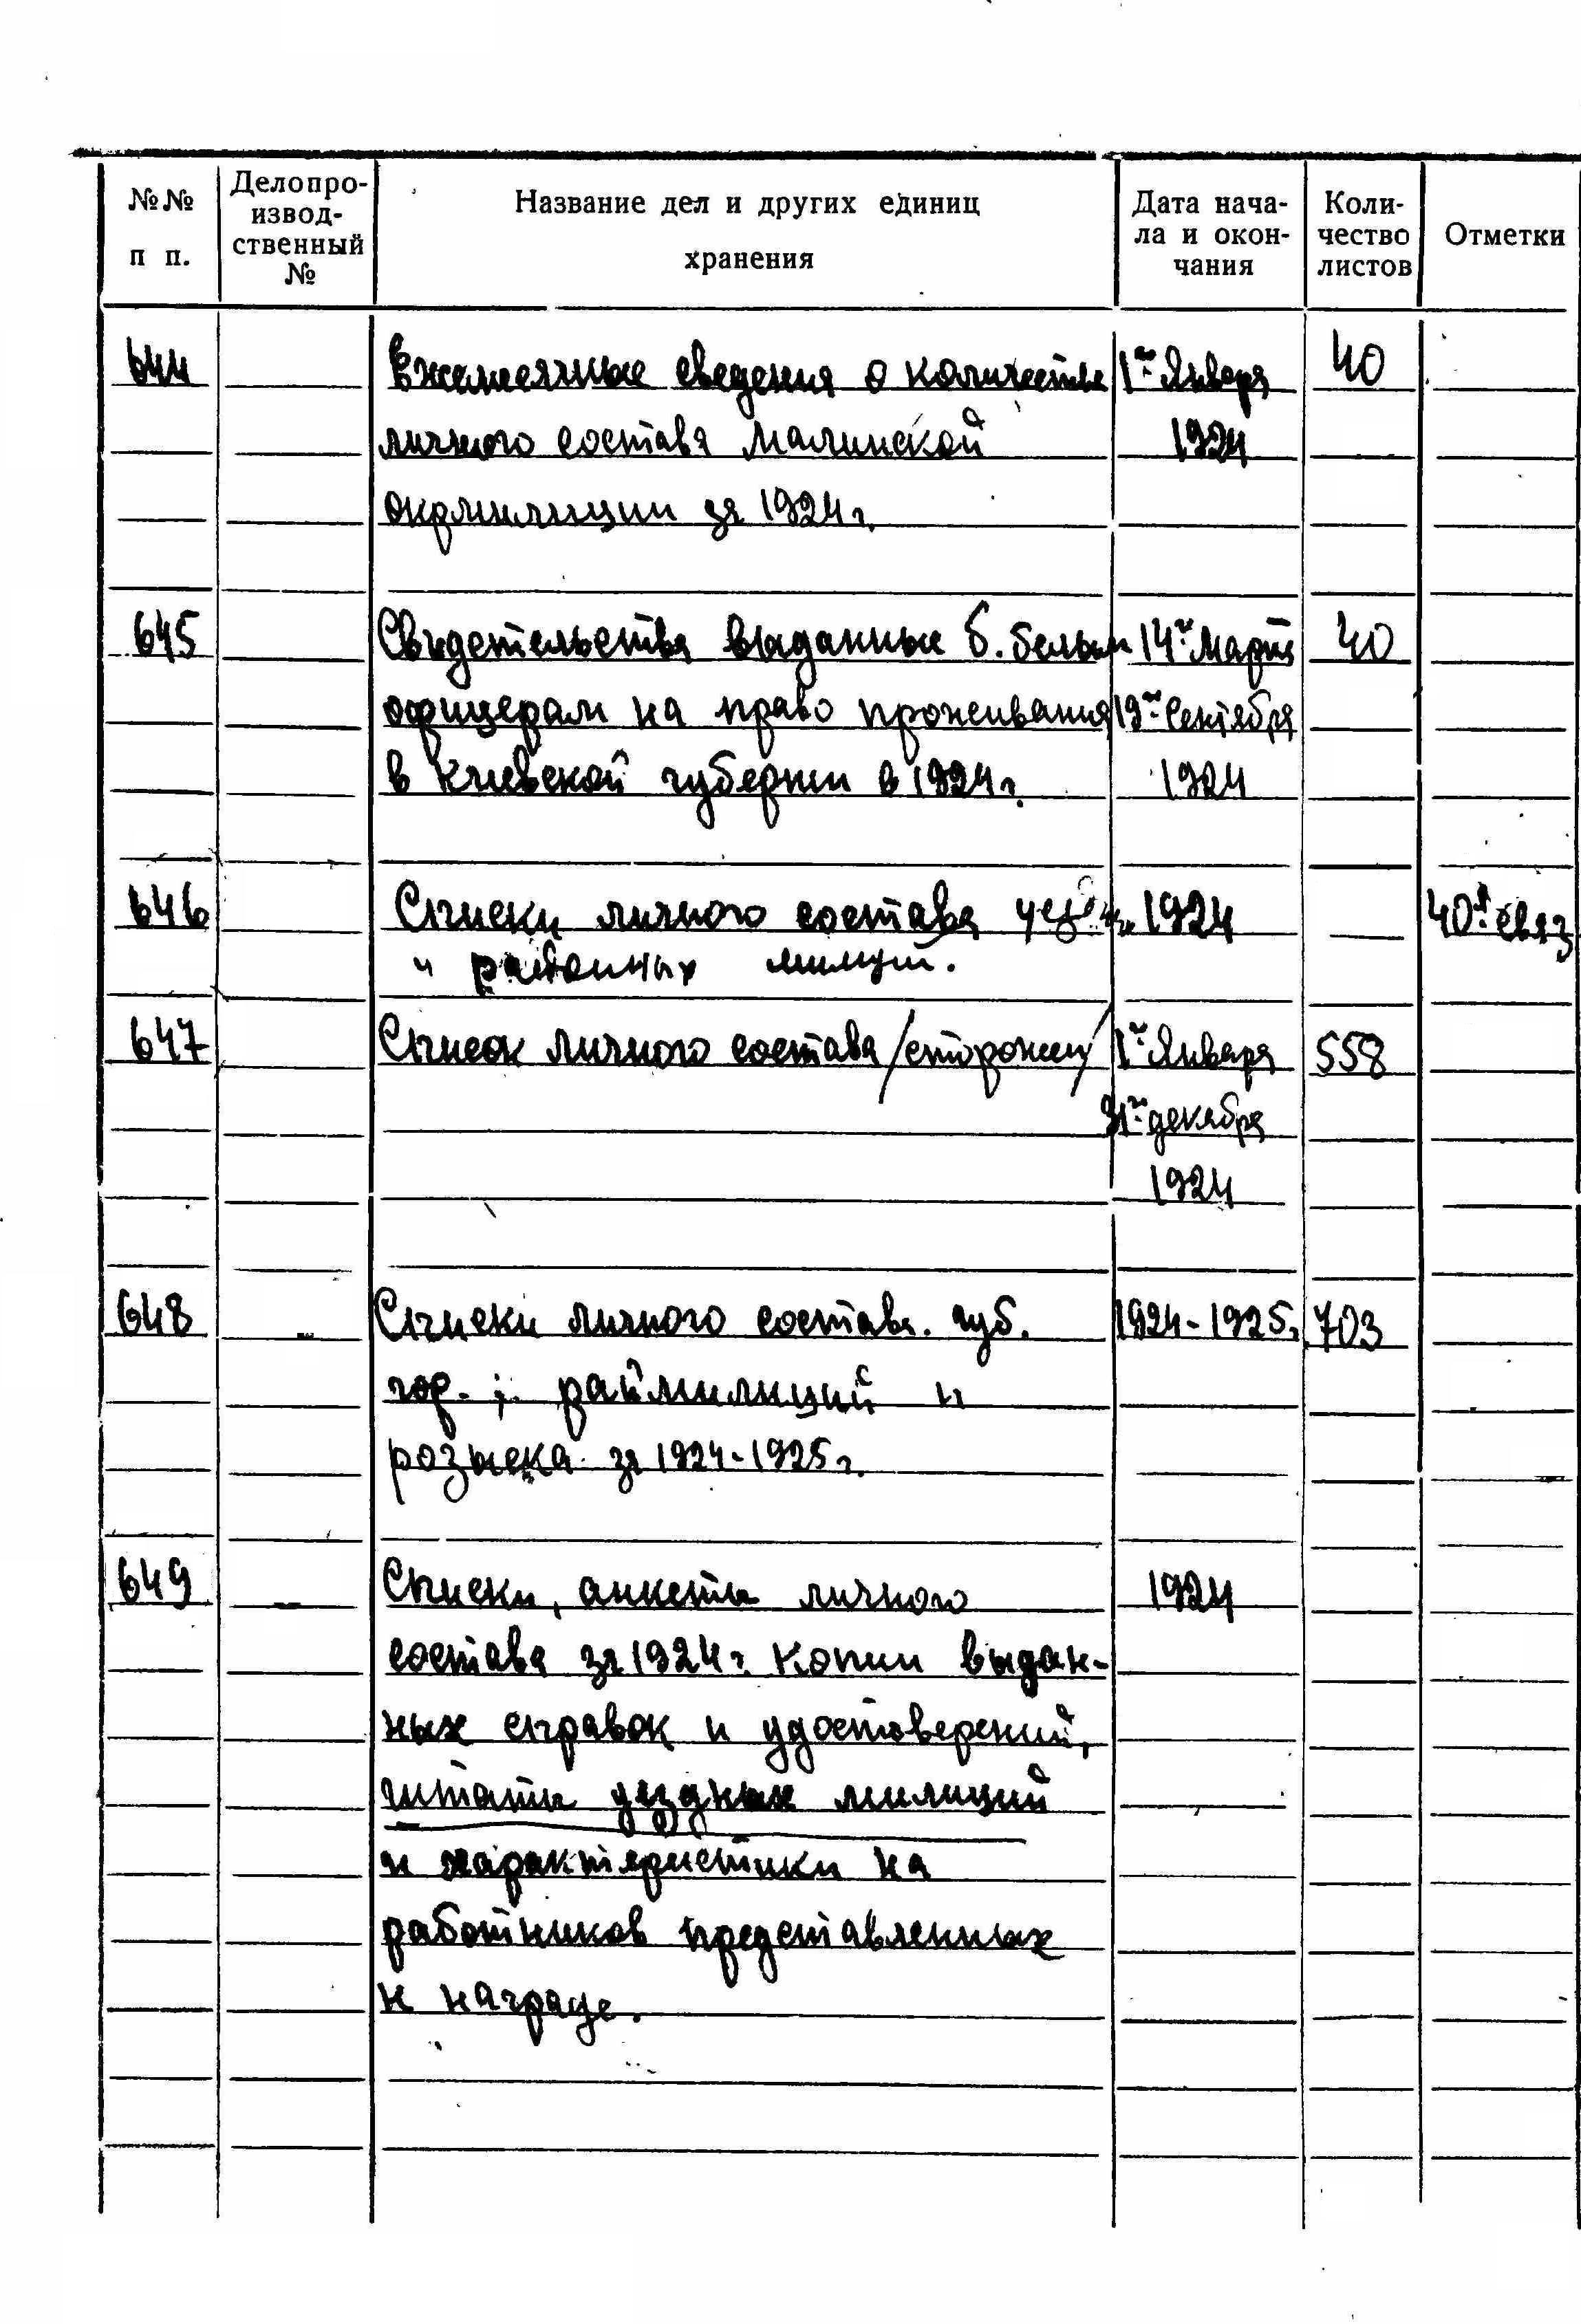 №№ п п.
Делопро-
извод-
ственный
№
Название дел и других единиц
хранения
Дата нача-
ла и окон-
чания
Коли-
чество
листов
Отметки
644 Ежемесячные сведения о количестве 1го Января 40
личного состава Малинской 1924
окрмилиции за 1924 г.
645 Свидетельства выданные б. белым 14го Марта 40
офицерам на право проживания 19го Сентября
в Киевской губернии в 1924 г. 1924
646 Списки личного состава 1924 — 40я связ
и районных милиций.
647 Список личного состава /сторожей/ 1го Января 558
31го декабря
1924
648 Списки личного состава. губ. 1924-1925г. 703
гор. раймилиций и
розыска за 1924-1925 г.
649 Списки, анкеты личного 1924
состава за 1924 г. Копии выдан-
ных справок и удостоверений,
штаты уездных милиций
и характеристики на
работников представленных
к награде.